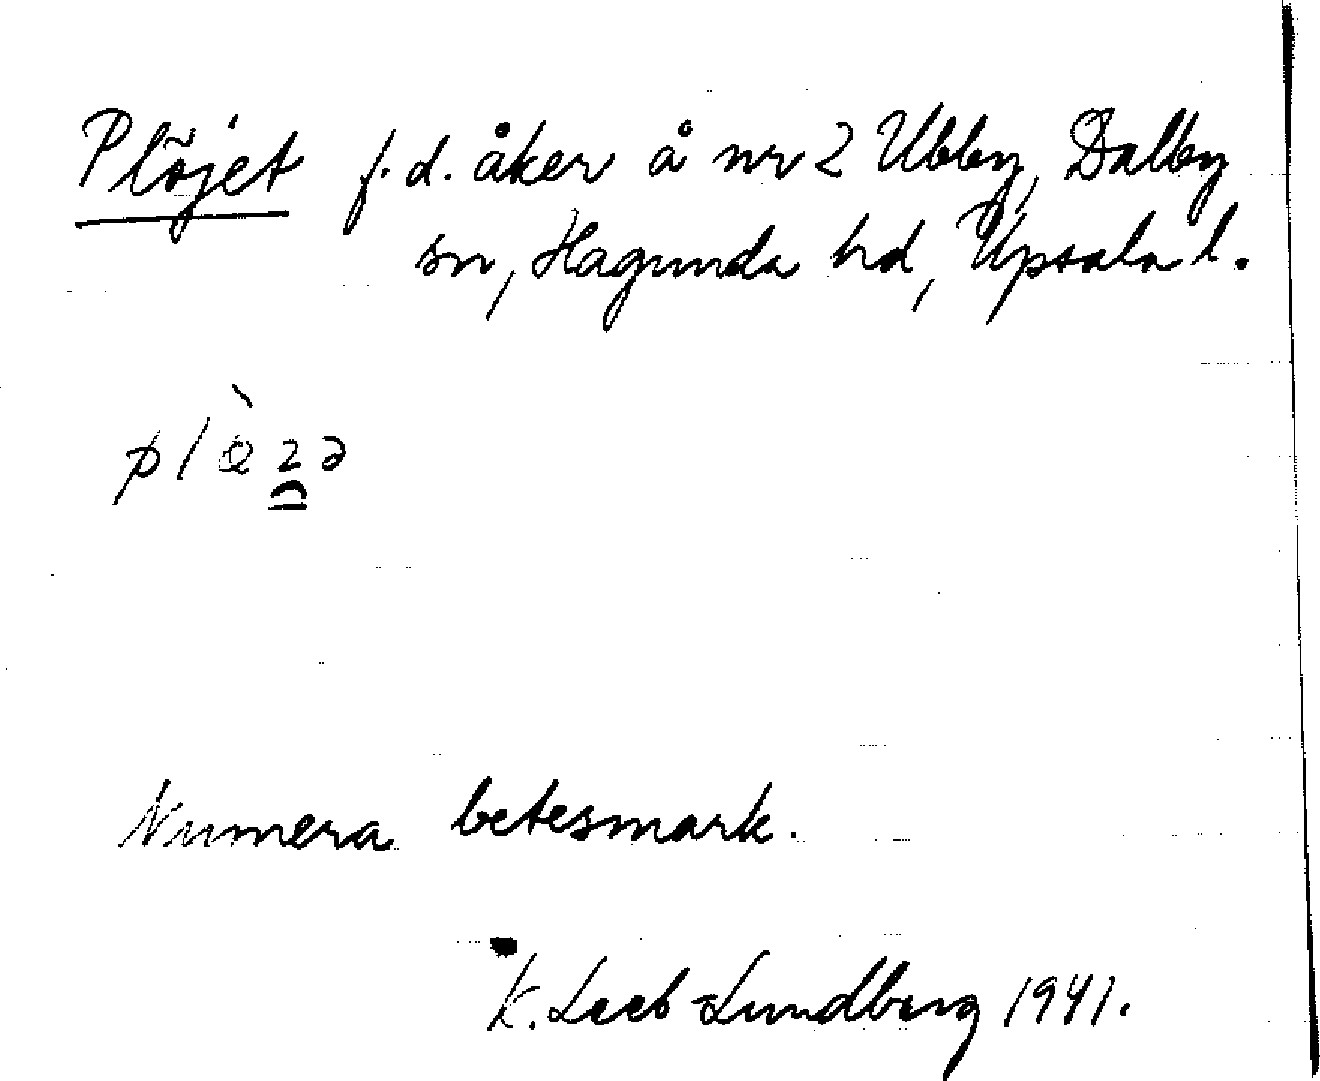 Plöjet f.d. åker å nr 2 Ubby, Dalby
sn, Hagunda hd, Upsala l.
Numera betesmark.
K. Leeb-Lundberg 1941.